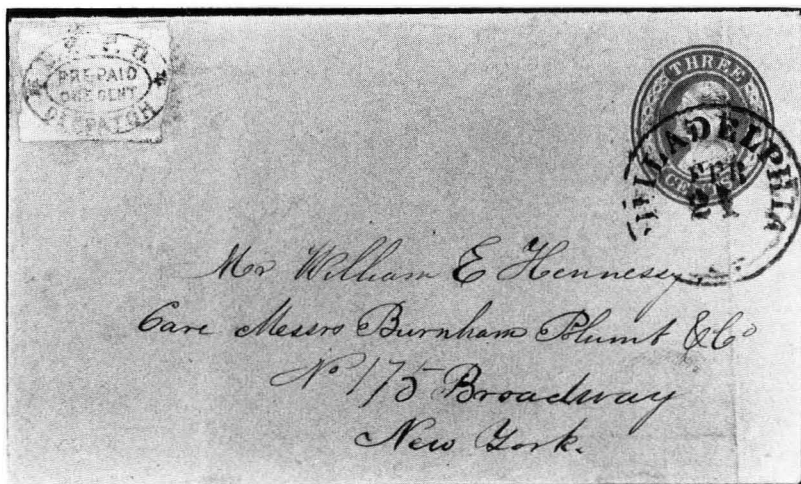 PRE-PAID
ONE CENT
DESPATCH
THREE
CENTS
PHILADELPHIA
FEB
Mr William E Hennesey
Care Messrs Burnham Plumb & Co
No 175 Broadway
New York.